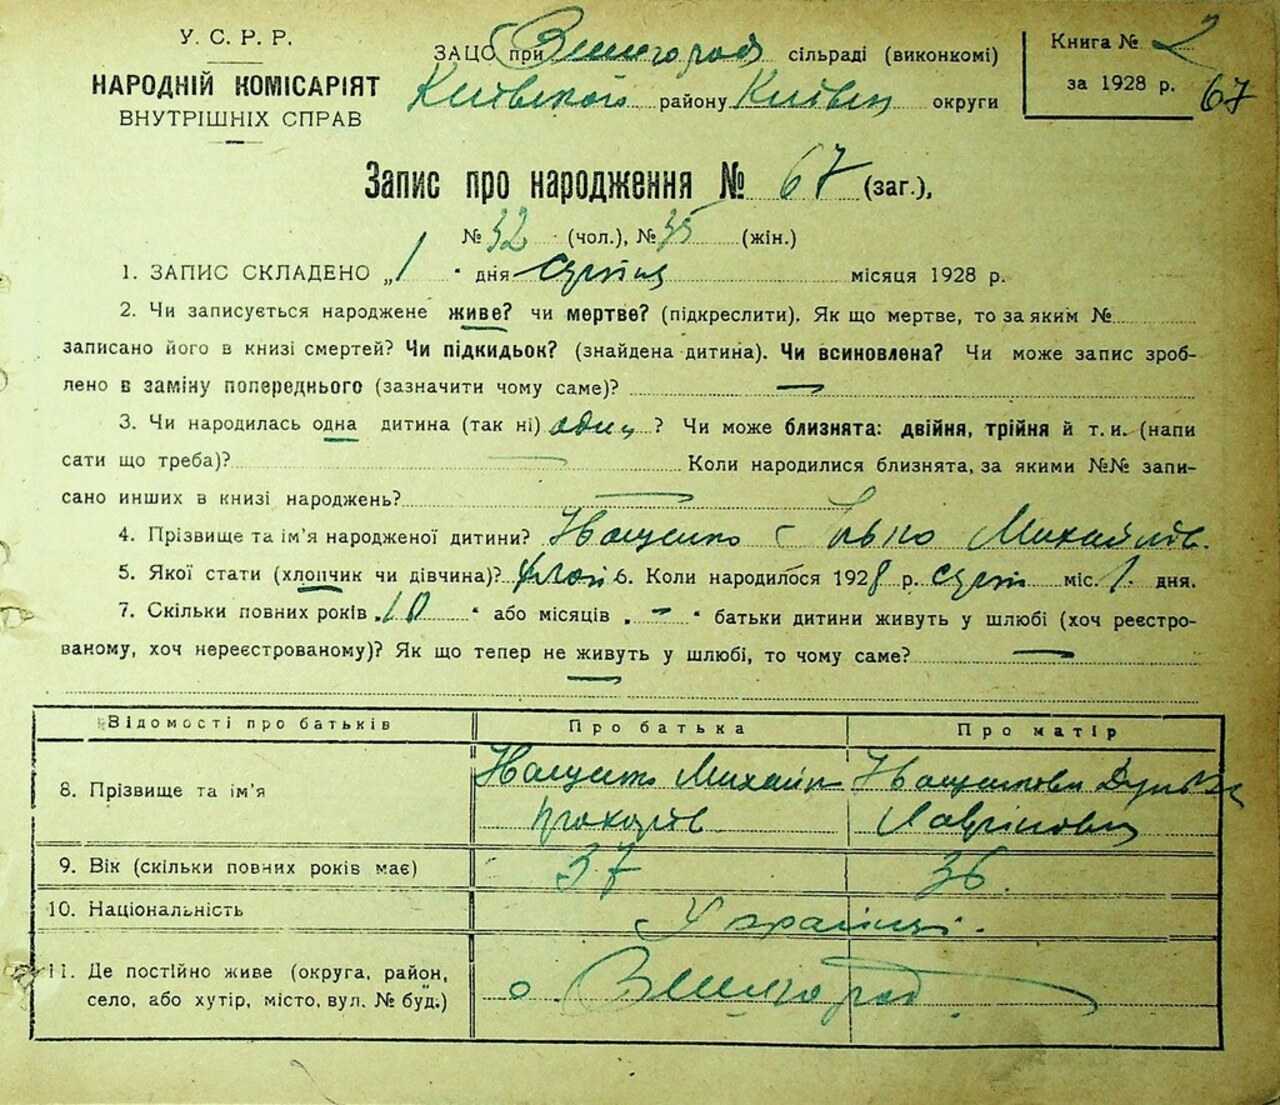 У. С. Р. Р.
НАРОДНІЙ КОМІСАРІЯТ
ВНУТРІШНІХ СПРАВ
ЗАЦС при Вишгород сільраді (виконкомі)
району Київськ округи
Книга № 2
за 1928 р. 67
Запис про народження № 67 (заг.),
№ 32 (чол.), № 35 (жін.)
1. ЗАПИС СКЛАДЕНО „1 " дня серпня місяця 1928 р.
2. Чи записується народжене живе? чи мертве? (підкреслити). Як що мертве, то за яким №
записано його в книзі смертей? Чи підкидьок? (знайдена дитина). Чи всиновлена? Чи може запис зроб-
лено в заміну попереднього (зазначити чому саме)? —
3. Чи народилась одна дитина (так ні) одна ? Чи може близнята: двійня, трійня й т. и. (напи
сати що треба)? — Коли народилися близнята, за якими №№ запи-
сано инших в книзі народжень? —
4. Прізвище та ім'я народженої дитини? Іващенко Михайлів.
5. Якої стати (хлопчик чи дівчина)? 6. Коли народилося 1928 р. серп міс. 1. дня.
7. Скільки повних років „10 " або місяців „ — " батьки дитини живуть у шлюбі (хоч реєстро-
ваному, хоч нереєстрованому)? Як що тепер не живуть у шлюбі, то чому саме? —
—
Відомості про батьків Про батька Про матір
8. Прізвище та ім'я Іващенко Михайло Іващенкова
Прохорів Лавріновна
9. Вік (скільки повних років має) 37 36.
10. Національність Українці.
11. Де постійно живе (округа, район,
село, або хутір, місто, вул. № буд.) с. Вишгород